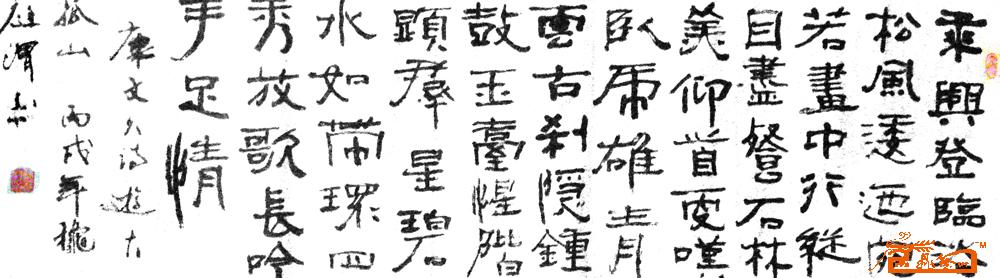 乘興登臨
松風逶迤宛
若畫中行縱
目盡磐石林
美仰首更嘆
臥虎雄青
雲古剎隱鐘
鼓玉臺階
顯群星碧
水如帶環四
秀放歌長吟
手足情
康文久詩遊大
孤山 丙戌年穐
渭書